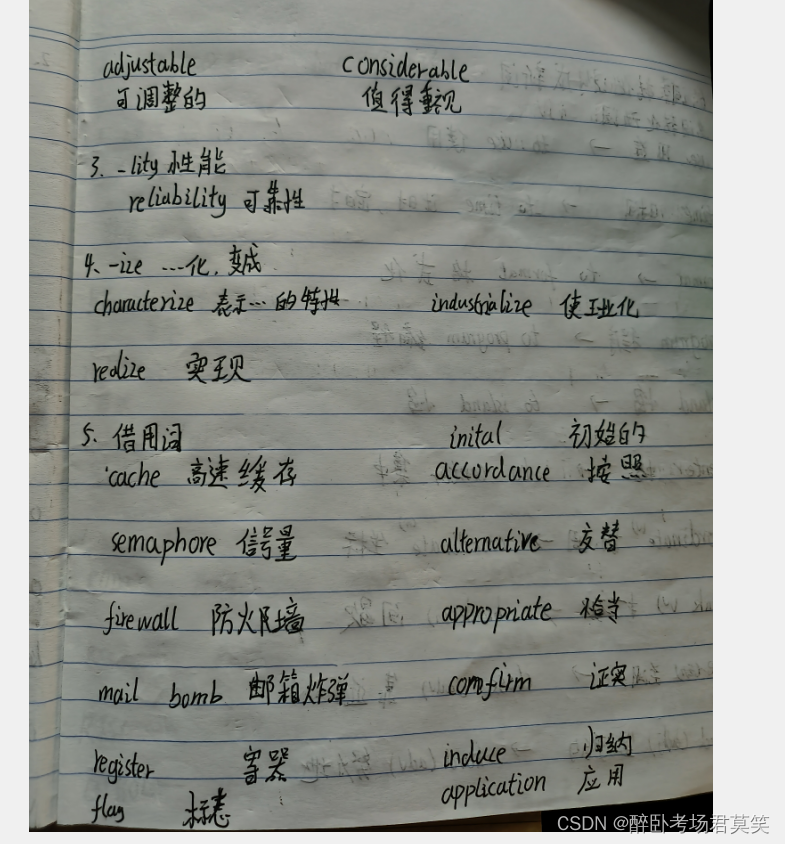 adjustable considerable
可调整的 值得重视
3. -lity 性能
reliability 可靠性
4、-ize ···化,变成
characterize 表示···的特性 industrialize 使工业化
realize 实现
5、借用词 inital 初始的
cache 高速缓存 accordance 按照
semaphore 信号量 alternative 交替
firewall 防火墙 appropriate 恰当
mail bomb 邮箱炸弹 comfirm 证实
register 寄器 induce 归纳
flag 标志 application 应用
CSDN @醉卧考场君莫笑